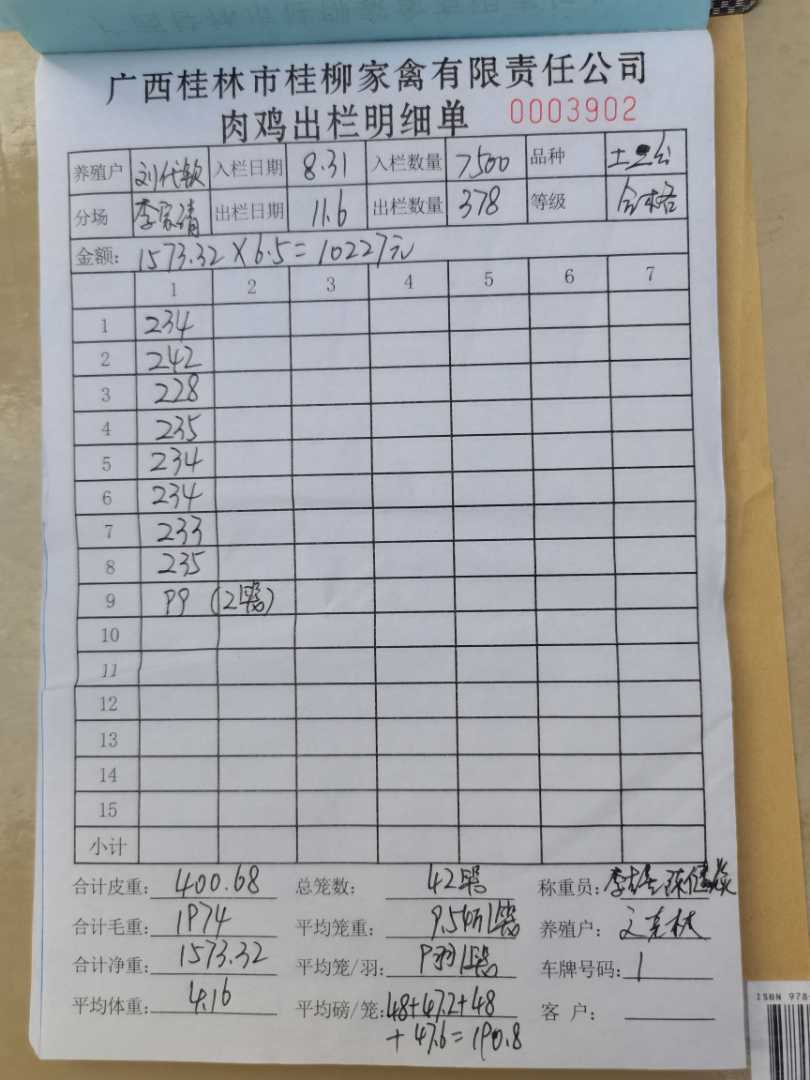 广西桂林市桂柳家禽有限责任公司
肉鸡出栏明细单 0003902
养殖户 刘代软 入栏日期 8.31 入栏数量 7500 品种 土2公
分场 李家靖 出栏日期 11.6 出栏数量 378 等级 合格
金额: 1573.32×6.5=10227元
1 2 3 4 5 6 7
1 234
2 242
3 228
4 235
5 234
6 234
7 233
8 235
9 99 (2笼)
10
11
12
13
14
15
小计
合计皮重: 400.68 总笼数: 42笼 称重员:
合计毛重: 1974 平均笼重: 9.54斤/笼 养殖户:
合计净重: 1573.32 平均笼/羽: 9羽/笼 车牌号码: /
平均体重: 4.16 平均磅/笼: 48+47.2+48 客 户:
+47.6=190.8
ISBN 978-